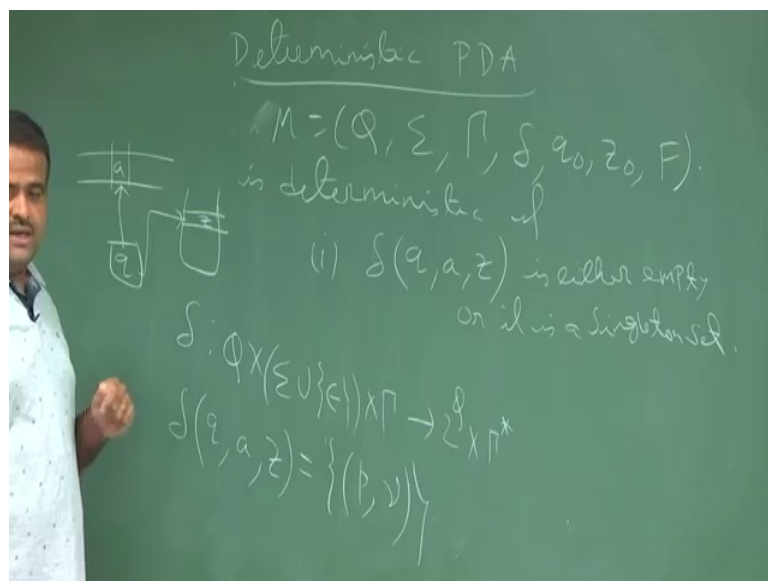 Deterministic PDA
M = (Q, Σ, Γ, δ, q₀, z₀, F).
is deterministic if
(i) δ(q, a, z) is either empty
or it is a singleton set.
a
z
q
δ: Q × (Σ ∪ {ε}) × Γ → 2^Q × Γ*
δ(q, a, z) = {(p, ν)}